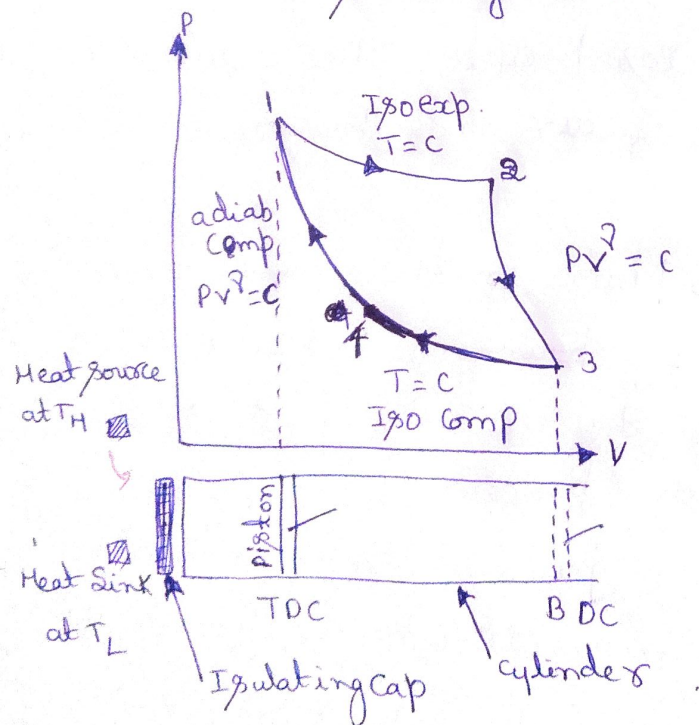 P
Iso exp.
T = C
2
adiab
Comp
PVγ = C
PVγ = C
4
3
T = C
Iso Comp
Heat source
at TH
V
Piston
Heat Sink
at TL
TDC
BDC
Isulating Cap
Cylinder